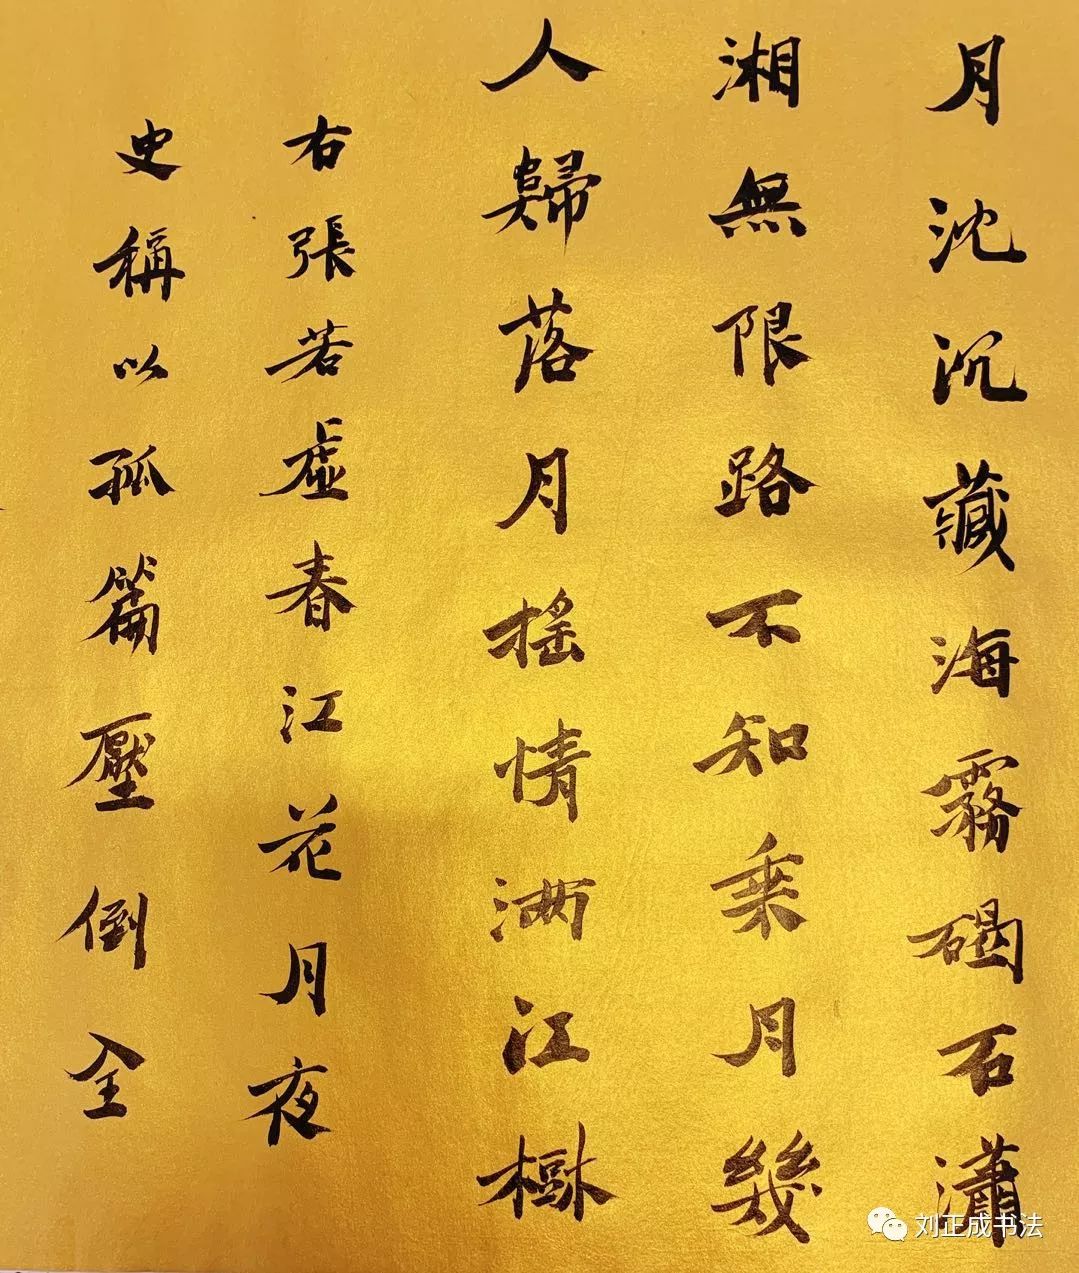 月沈沉藏海霧碣石瀟
湘無限路不知乗月幾
人歸落月摇情满江樹
右張若虛春江花月夜
史稱以孤篇壓倒全
刘正成书法